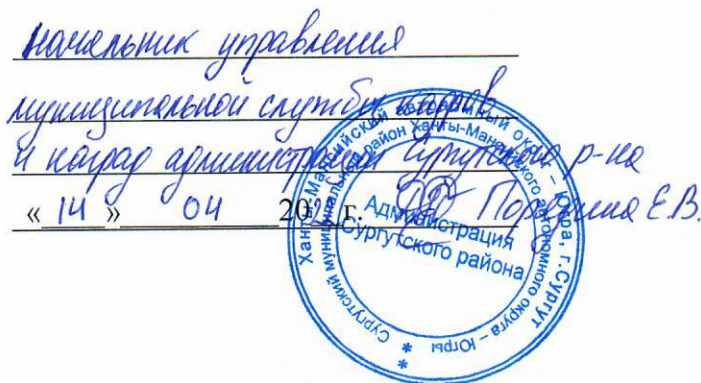 начальник управления
муниципальной службы, кадров
и наград администрации Сургутского р-на
«14» 04 20 г. Е.В.
Ханты-Мансийский автономный округ – Югра, г.Сургут
Сургутский муниципальный район Ханты-Мансийского автономного округа – Югры
Администрация
Сургутского района